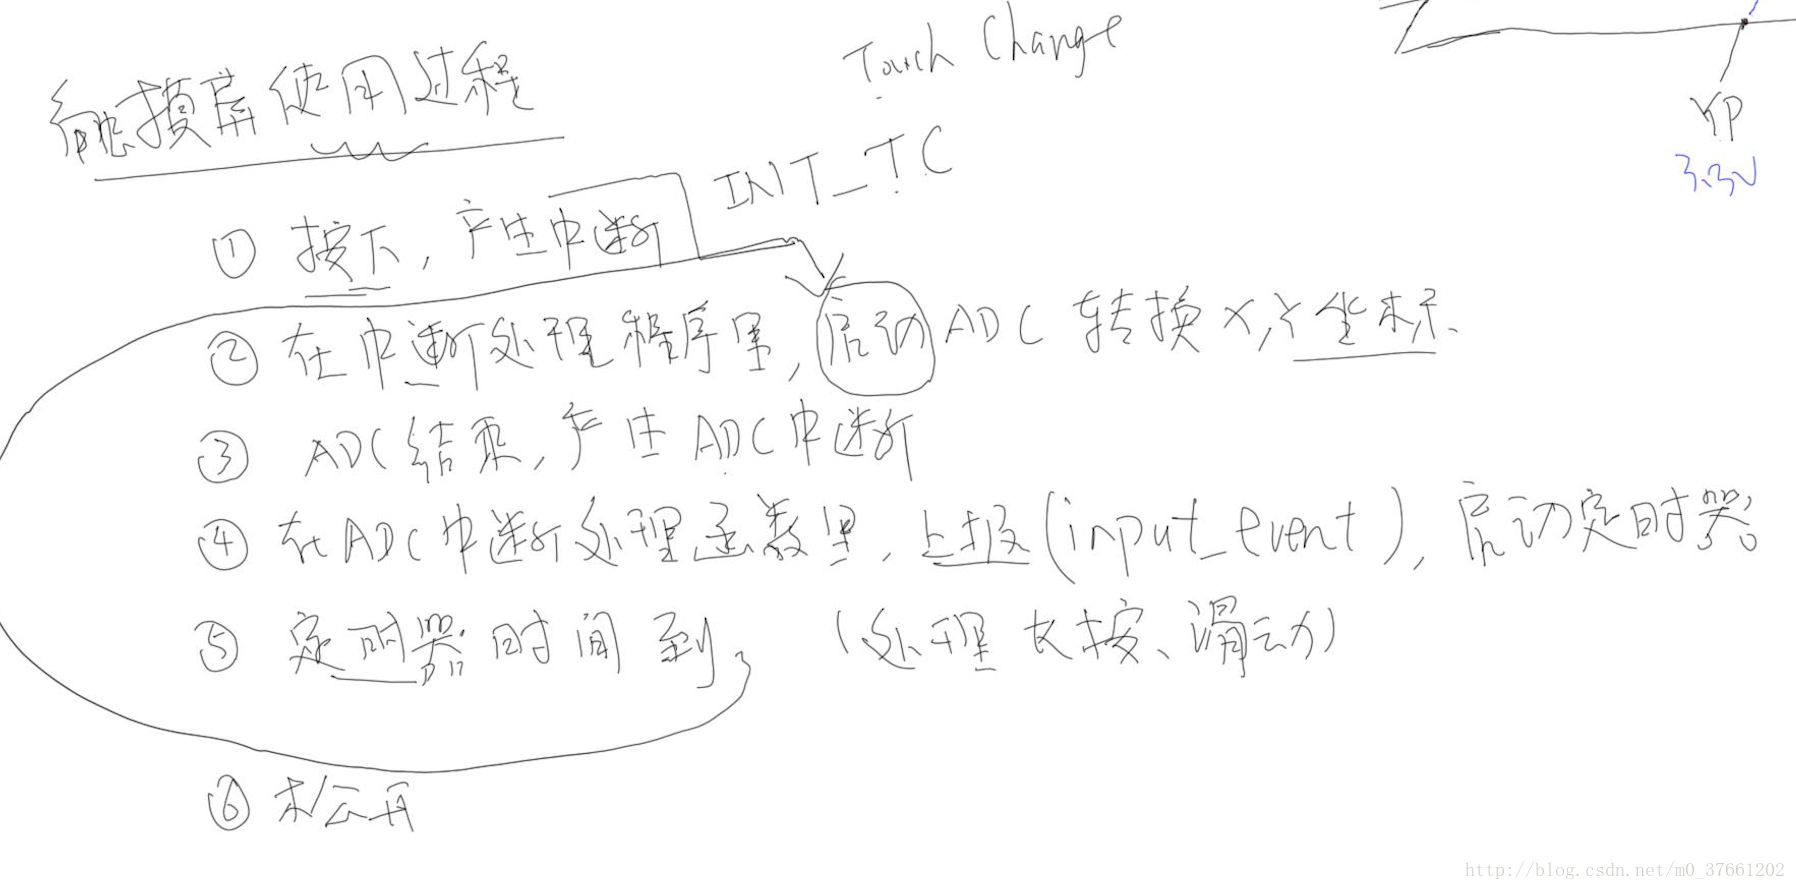 Touch Change
触摸屏使用过程
YP
3.3V
INT_TC
① 按下,产生中断
② 在中断处理程序里,启动ADC转换X,Y坐标.
③ ADC结束,产生ADC中断
④ 在ADC中断处理函数里,上报(input_event),启动定时器
⑤ 定时器时间到,(处理长按、滑动)
⑥ 松开
http://blog.csdn.net/m0_37661202